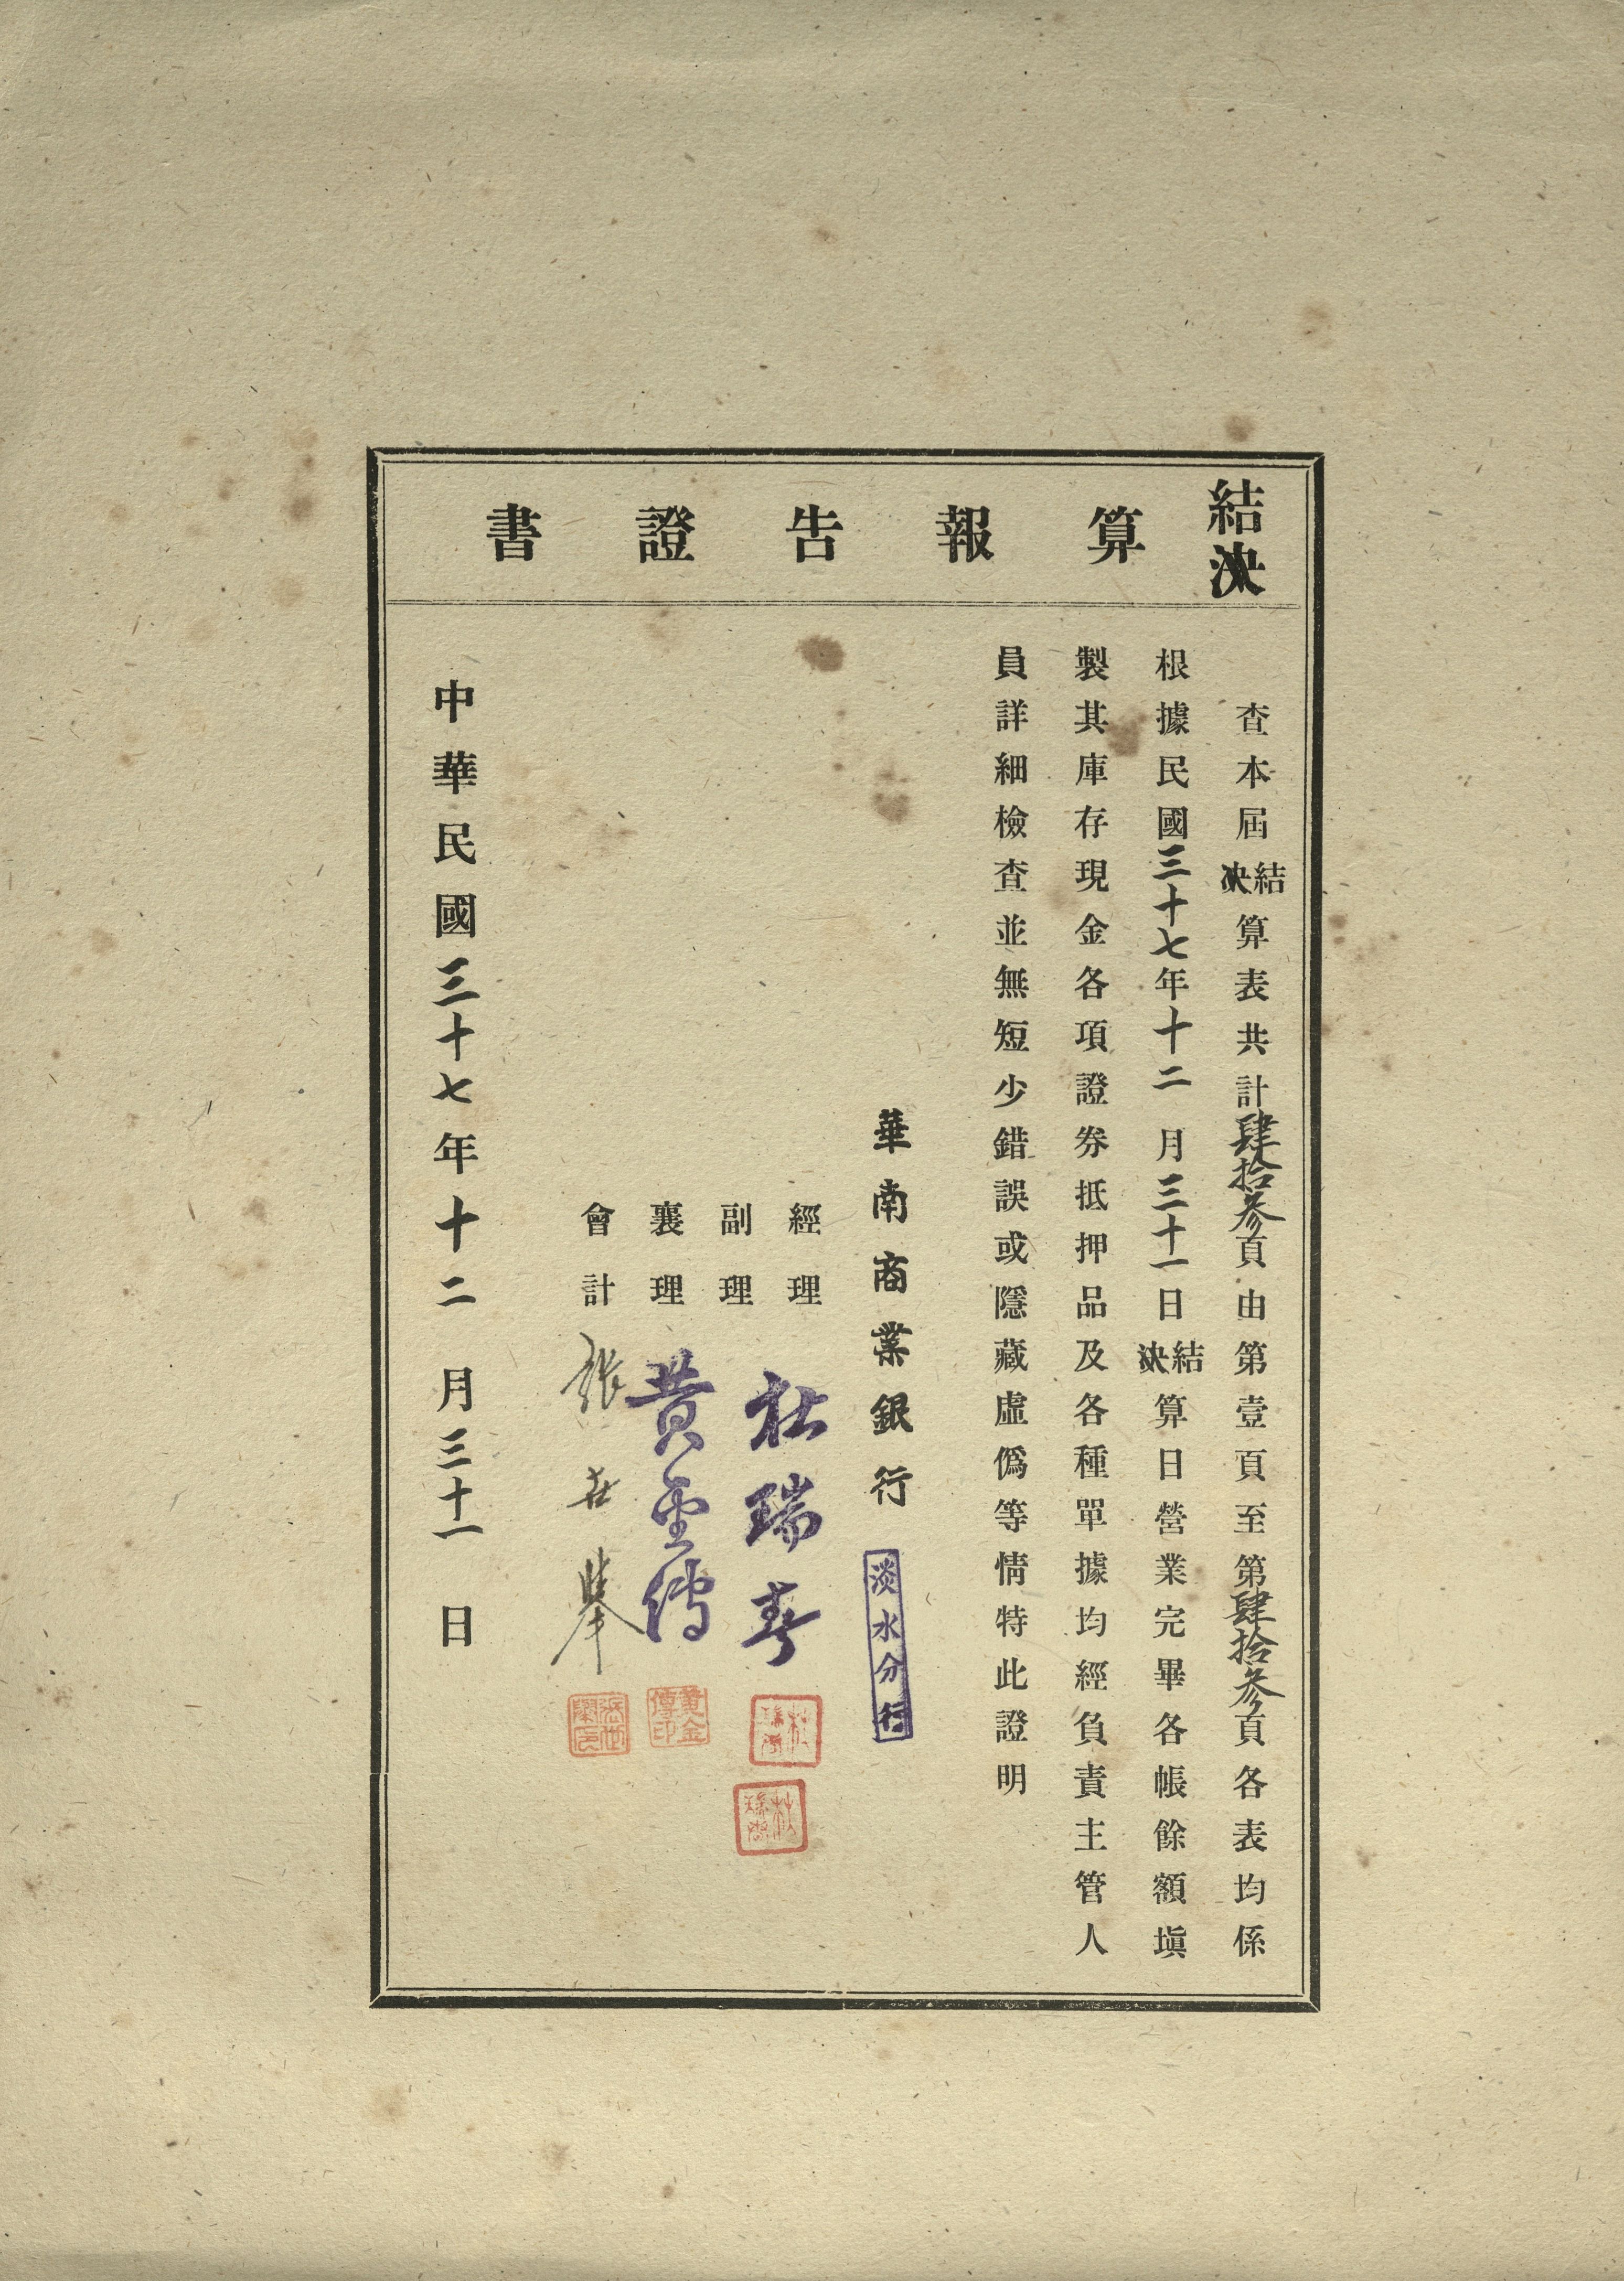 結決算報告證書
查本屆結決算表共計肆拾參頁由第壹頁至第肆拾參頁各表均係
根據民國三十七年十二月三十一日結決算日營業完畢各帳餘額塡
製其庫存現金各項證券抵押品及各種單據均經負責主管人
員詳細檢查並無短少錯誤或隱藏虛僞等情特此證明
華南商業銀行 淡水分行
經理 杜瑞
副理
襄理 黃金傳 黃金傳印
會計 張世
中華民國三十七年十二月三十一日